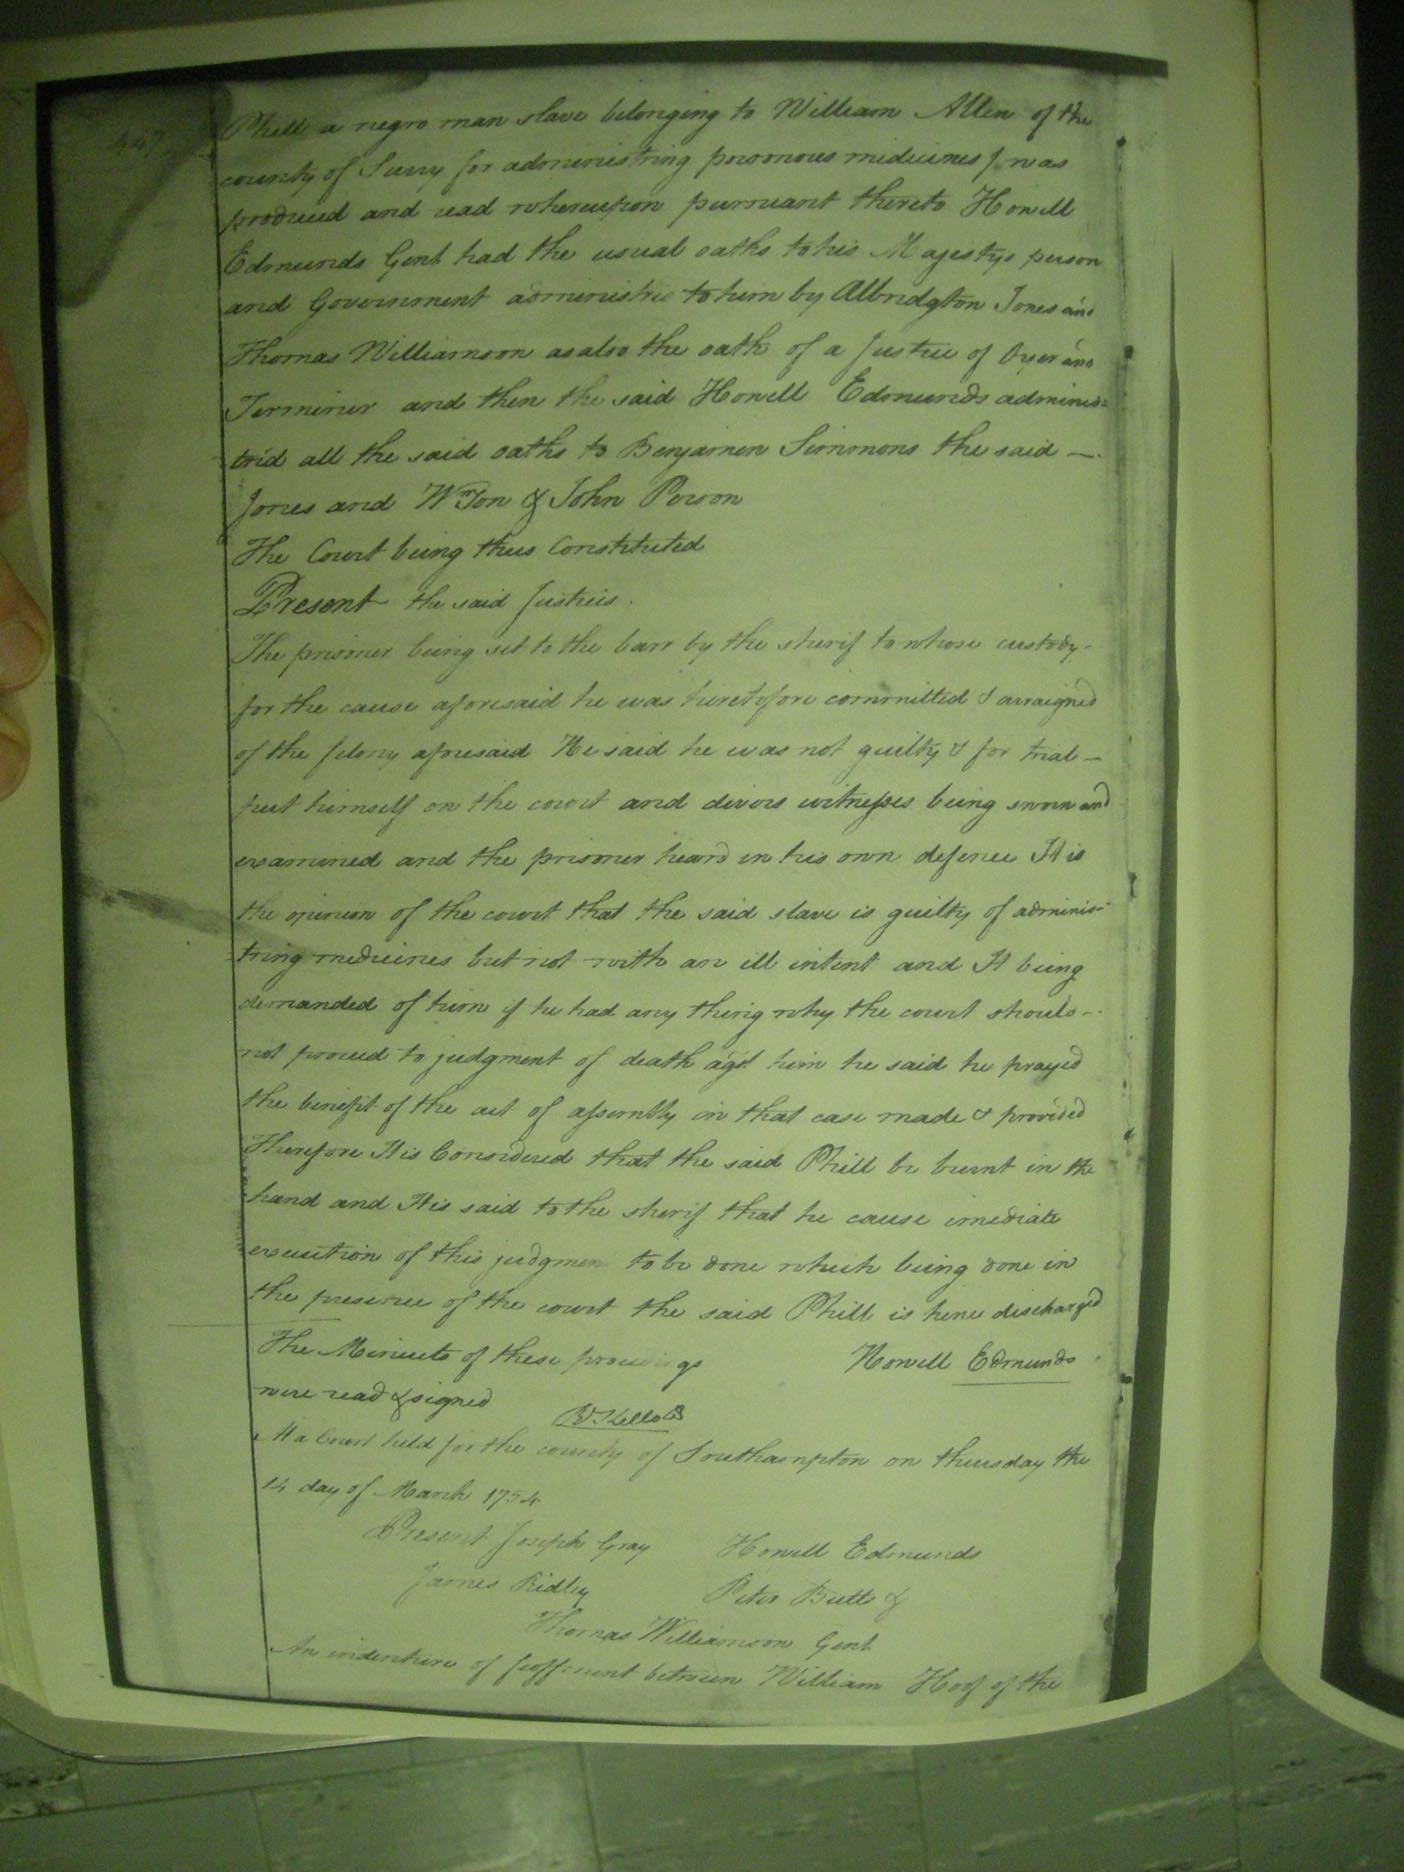 447
Phill a negro man slave belonging to William Allen of the
county of Surry for administring poisonous midicines / was
produced and read whereupon pursuant thereto Howell
Edmunds Gent had the usual oaths to his Majestys person
and Government administrie to him by Albridgton Jones and
Thomas Williamson as also the oath of a Justice of Oyer and
Terminer and then the said Howell Edmunds adminis=
trid all the said oaths to Benjamin Simmons the said —
Jones and Wmson & John Person
The Court being thus Constituted
Present the said Justices.
The prisoner being set to the barr by the sherif to whose custody-
for the cause aforesaid he was heretofore committed & arraigned
of the felony aforesaid He said he was not guilty & for trial —
put himself on the court and divers witnesses being sworn and
examined and the prisoner heard in his own defence It is
the opinion of the court that the said slave is guilty of adminis-
tring medicines but not with an ill intent and It being
demanded of him if he had any thing why the court should -
not proceed to judgment of death agst him he said he prayed
the benefit of the act of assembly in that case made & provided
Therefore It is Considered that the said Phill be burnt in the
hand and It is said to the sherif that he cause imediate
execution of this judgmen to be done which being done in
the presence of the court the said Phill is hence discharged
The Minuets of these proceedings Howell Edmunds
were read & signed
At a Court held for the county of Southampton on thursday the
14 day of March 1754
Present Joseph Gray Howell Edmunds
James Ridley Peter Butts &
Thomas Williamson Gent
An indenture of feoffment between William Hoof of the